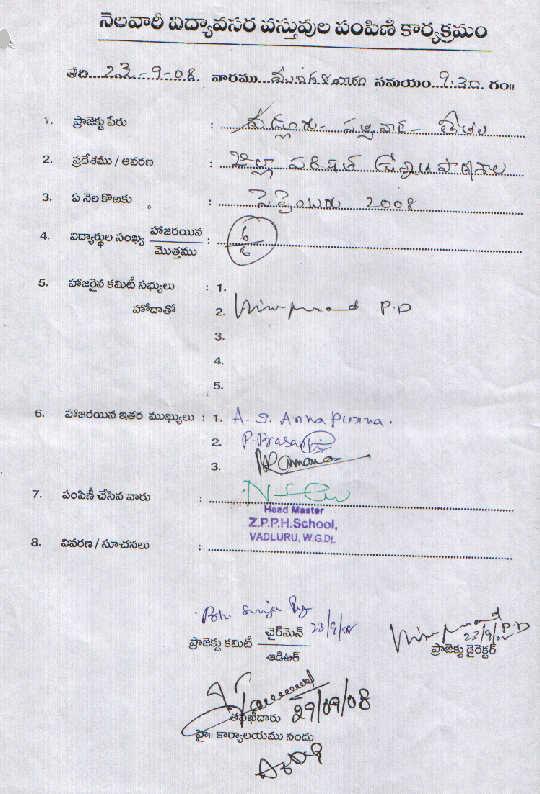 నెలవారీ విద్యావసర వస్తువుల పంపిణి కార్యక్రమం
తేది 23-9-08. వారము మంగళవారం సమయం 9.30 గం॥
1. ప్రాజెక్టు పేరు :
2. ప్రదేశము / ఆవరణ : జిల్లా పరిషత్ ఉన్నత పాఠశాల
3. ఏ నెల కొఱకు : సెప్టెంబరు 2008
4. విద్యార్థుల సంఖ్య హాజరయిన / మొత్తము : 6/6
5. హాజరైన కమిటీ సభ్యులు : 1.
హోదాతో 2. P.D
3.
4.
5.
6. హాజరయిన ఇతర ముఖ్యులు : 1. A. S. Annapurna.
2. P. Prasad
3. Ramana
7. పంపిణీ చేసిన వారు :
Head Master
Z.P.P.H.School,
VADLURU, W.G.Dt.
8. వివరణ / సూచనలు :
23/9/08
ప్రాజెక్టు కమిటీ చైర్‌మెన్ / ఆడిటర్
P.D
23/9/08
ప్రాజెక్టు డైరెక్టర్
29/09/08
తనిఖీదారు
హై॥ కార్యాలయము నందు